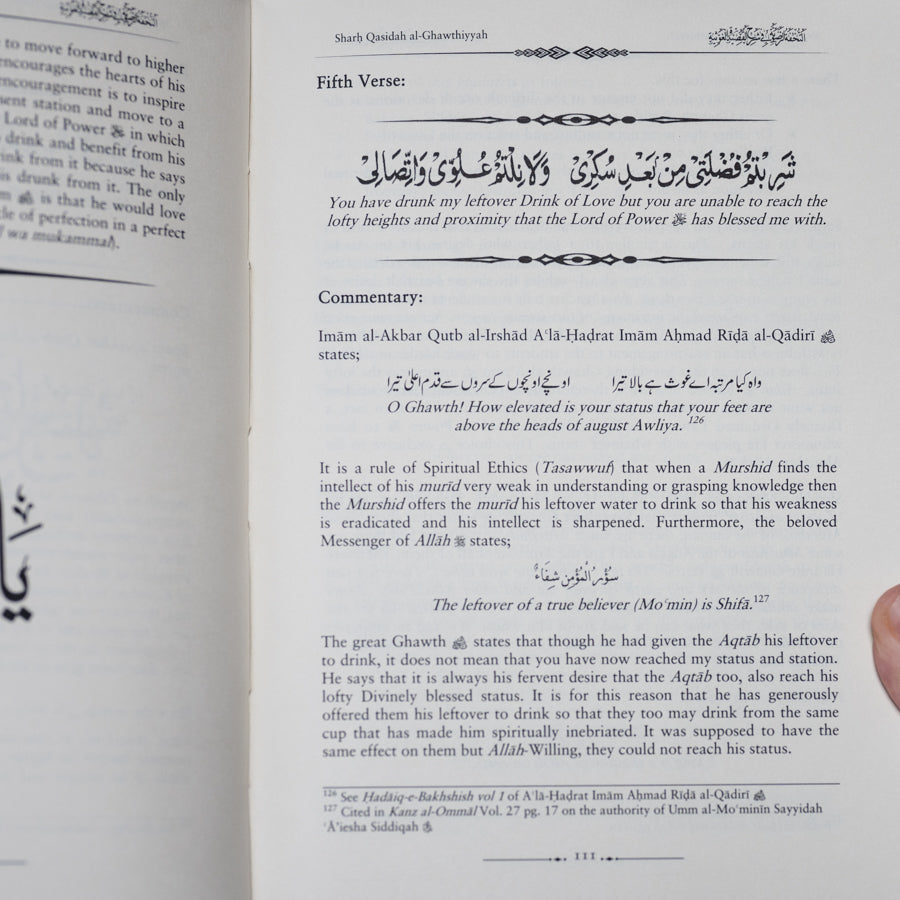 to move forward to higher
encourages the hearts of his
encouragement is to inspire
station and move to a
Lord of Power ﷻ in which
drink and benefit from his
from it because he says
drunk from it. The only
is that he would love
of perfection in a perfect
wa mukammal).
Sharḥ Qasidah al-Ghawthiyyah
Fifth Verse:
شَرِبْتُمْ فُضْلَتِيْ مِنْ بَعْدِ سُكْرِيْ وَلَا نِلْتُمْ عُلُوِّيْ وَاتِّصَالِيْ
You have drunk my leftover Drink of Love but you are unable to reach the
lofty heights and proximity that the Lord of Power ﷻ has blessed me with.
Commentary:
Imām al-Akbar Qutb al-Irshād A'lā-Ḥaḍrat Imām Aḥmad Rīḍā al-Qādirī
states;
واہ کیا مرتبہ اے غوث ہے بالا تیرا اونچے اونچوں کے سروں سے قدم اعلیٰ تیرا
O Ghawth! How elevated is your status that your feet are
above the heads of august Awliya. 126
It is a rule of Spiritual Ethics (Tasawwuf) that when a Murshid finds the
intellect of his murīd very weak in understanding or grasping knowledge then
the Murshid offers the murīd his leftover water to drink so that his weakness
is eradicated and his intellect is sharpened. Furthermore, the beloved
Messenger of Allāh ﷺ states;
سُؤْرُ الْمُؤْمِنِ شِفَاءٌ
The leftover of a true believer (Mo'min) is Shifā.127
The great Ghawth states that though he had given the Aqtāb his leftover
to drink, it does not mean that you have now reached my status and station.
He says that it is always his fervent desire that the Aqtāb too, also reach his
lofty Divinely blessed status. It is for this reason that he has generously
offered them his leftover to drink so that they too may drink from the same
cup that has made him spiritually inebriated. It was supposed to have the
same effect on them but Allāh-Willing, they could not reach his status.
126 See Ḥadāiq-e-Bakhshish vol 1 of A'lā-Ḥaḍrat Imām Aḥmad Rīḍā al-Qādirī
127 Cited in Kanz al-Ommāl Vol. 27 pg. 17 on the authority of Umm al-Mo'minīn Sayyidah
'Ā'iesha Siddiqah
111